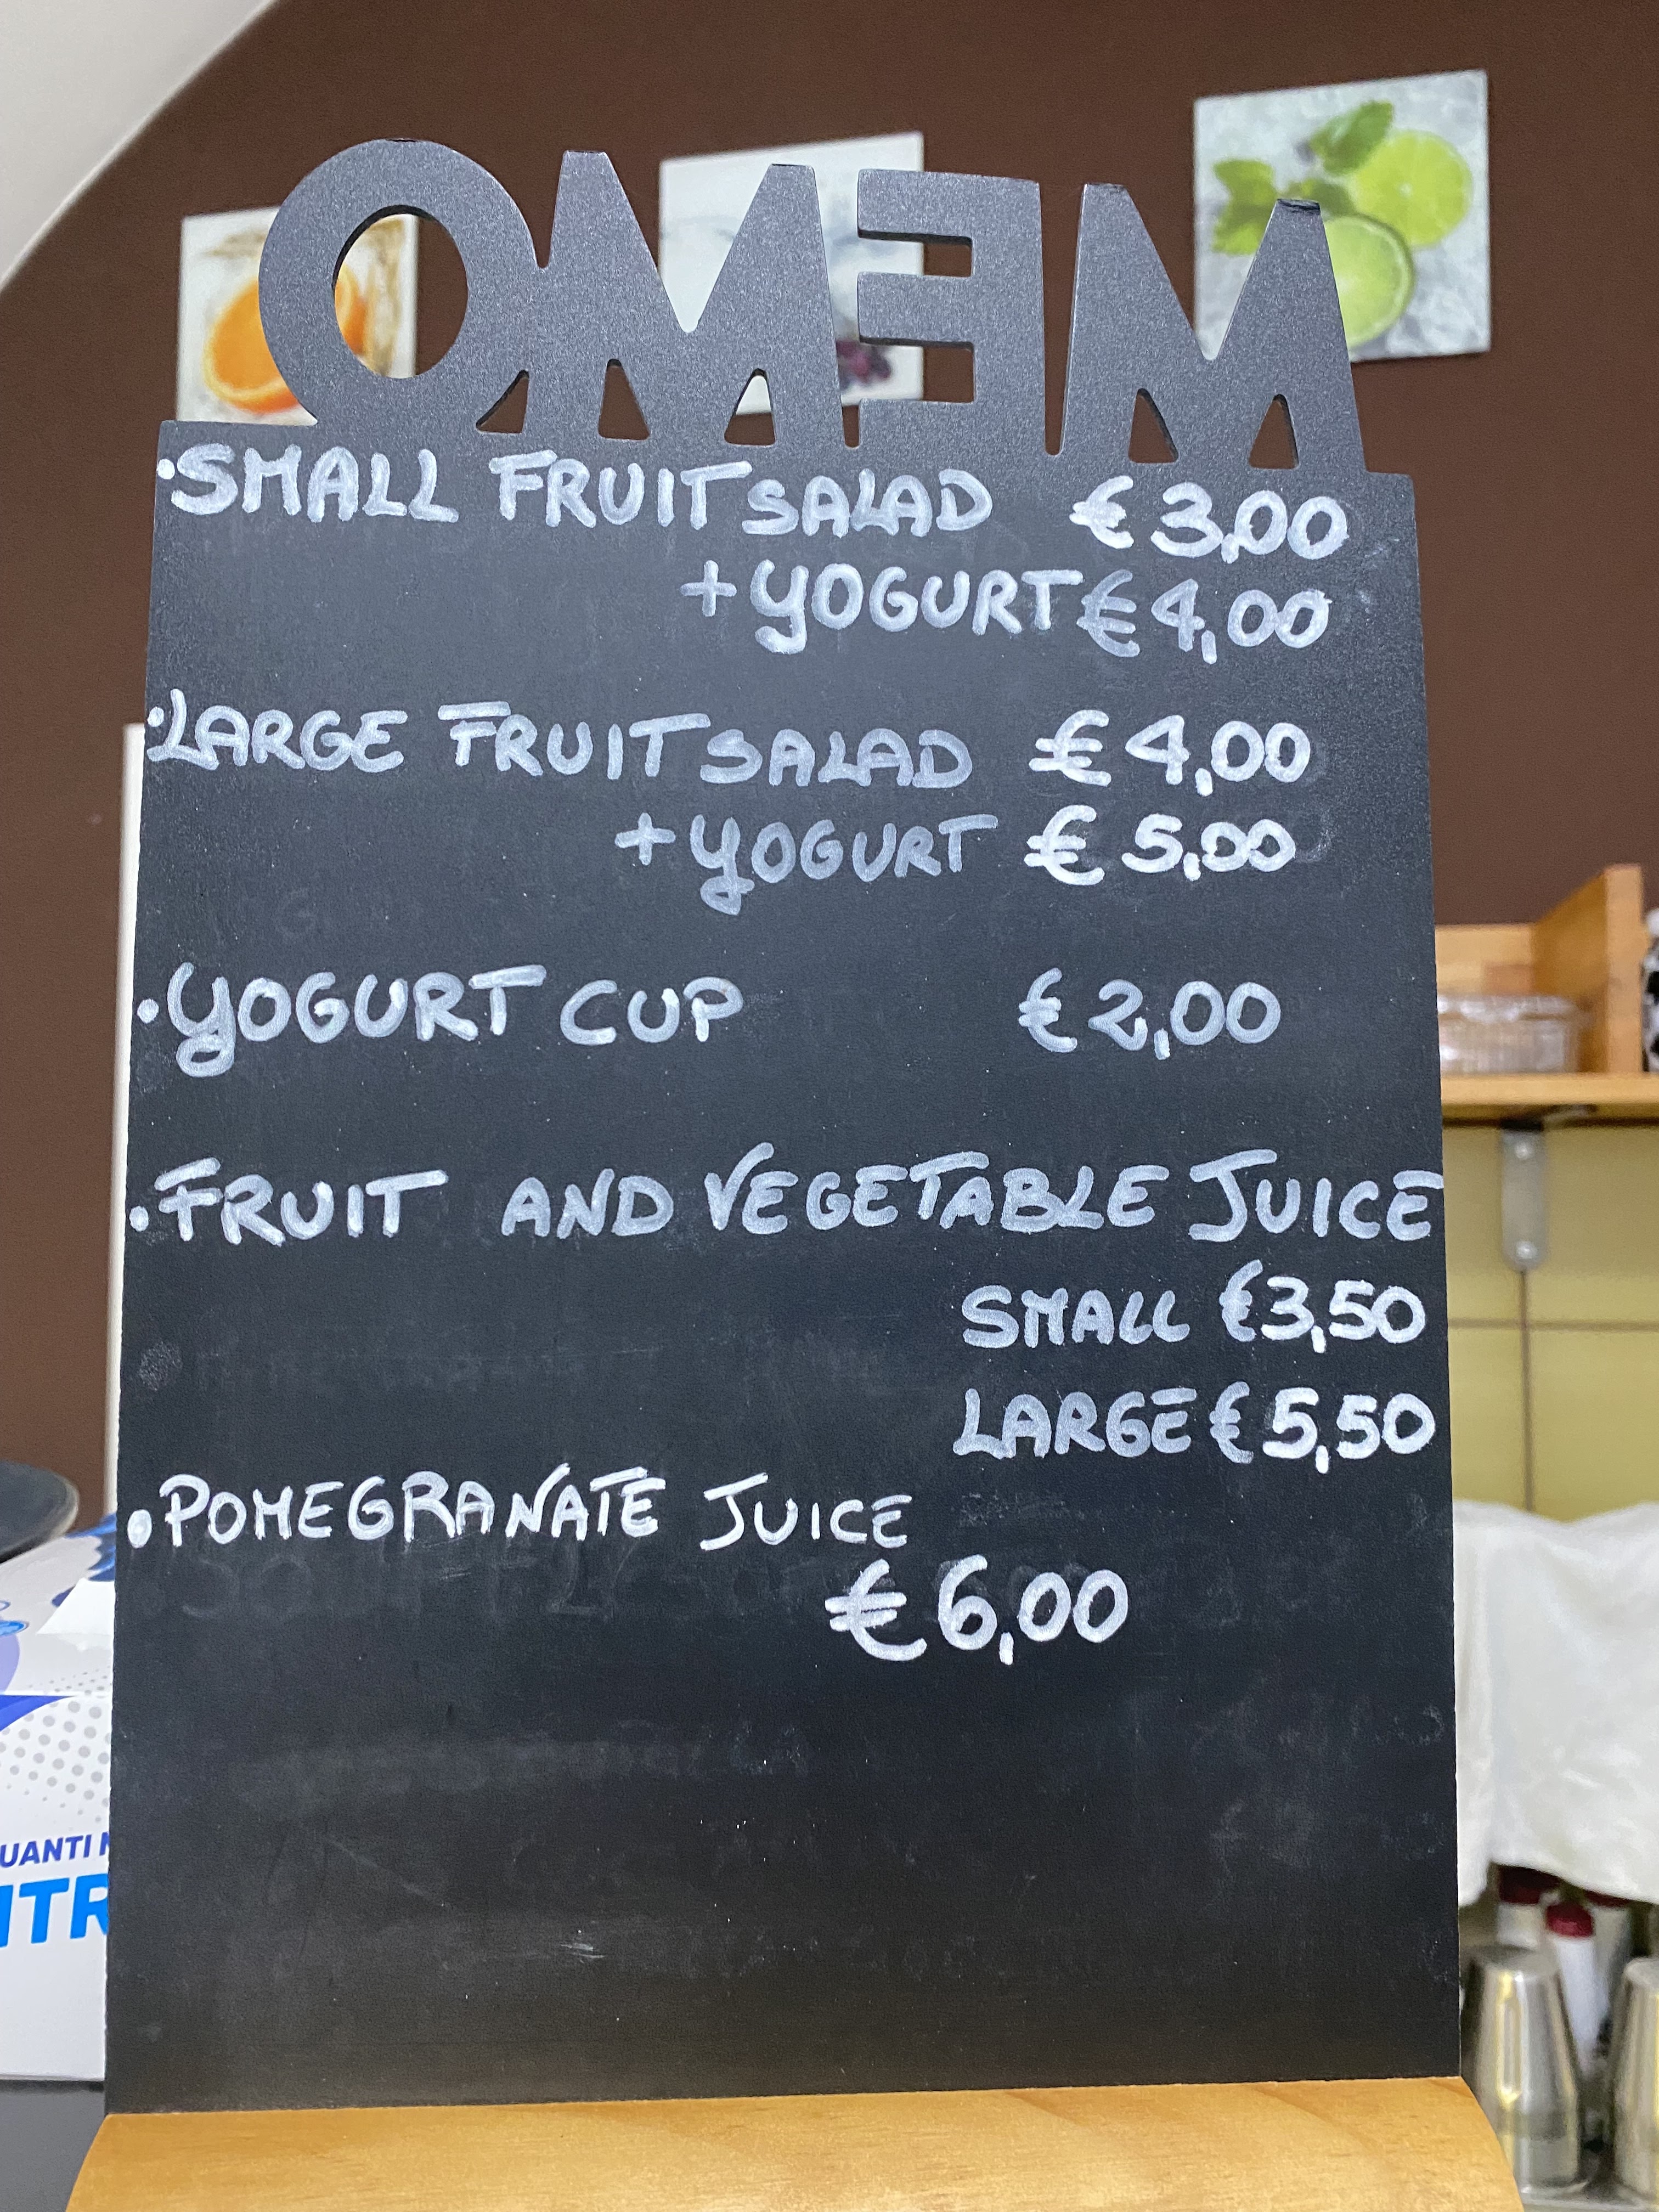 MEMO
·SMALL FRUIT SALAD € 3,00
+YOGURT € 4,00
·LARGE FRUIT SALAD € 4,00
+YOGURT € 5,00
·YOGURT CUP € 2,00
·FRUIT AND VEGETABLE JUICE
SMALL €3,50
LARGE €5,50
·POMEGRANATE JUICE
€ 6,00
UANTI
ITR